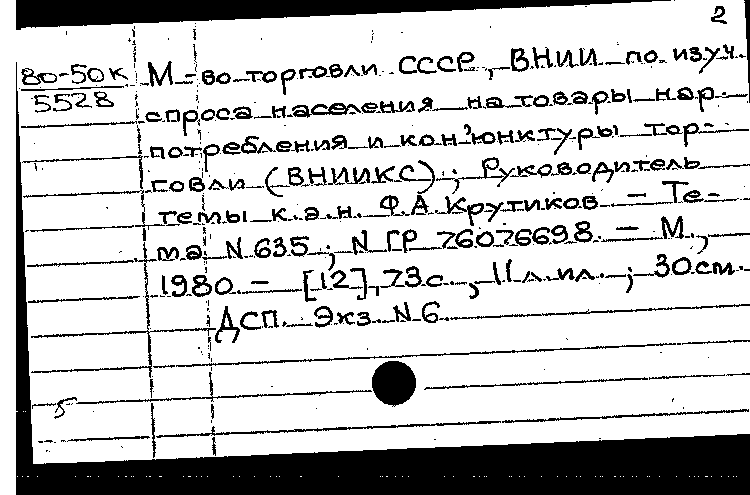 2
80-50к
5528
М-во торговли СССР, ВНИИ по изуч.
спроса населения на товары нар.
потребления и кон'юнктуры тор-
говли (ВНИИКС); Руководитель
темы к.э.н. Ф.А.Крутиков. - Те-
ма N 635; N ГР 76076698. - М.,
1980. - [12], 73с., 11 л.ил.; 30см.
ДСП. Экз. N 6.
5